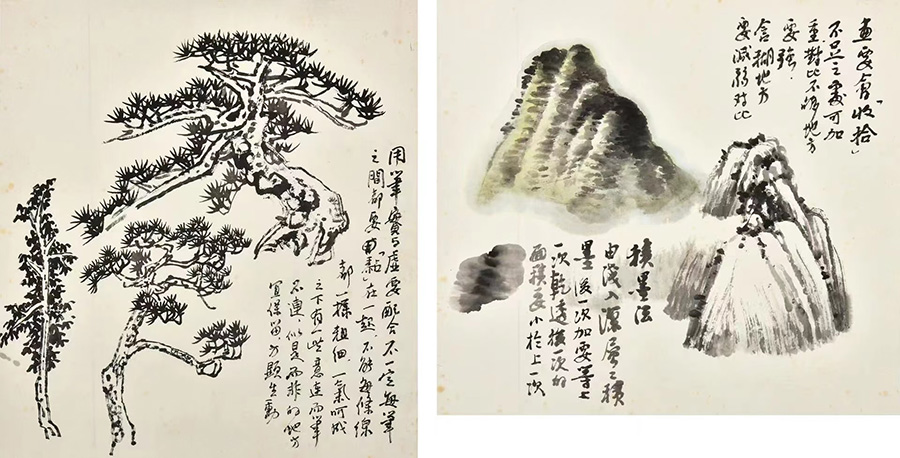 用筆實与虛要配合不一定每筆
之間都要「黏」在一起不能每條線
都一樣粗細一氣呵成
之下有一些意连而筆
不連似是而非的地方
宜保留方顯生動
畫要會「收拾」
不足之處可加
重對比不够地方
要強
含糊地方
要減弱对比
積墨法
由淺入深層々積
墨後一次加要等上
一次乾透後一次的
面積要小於上一次